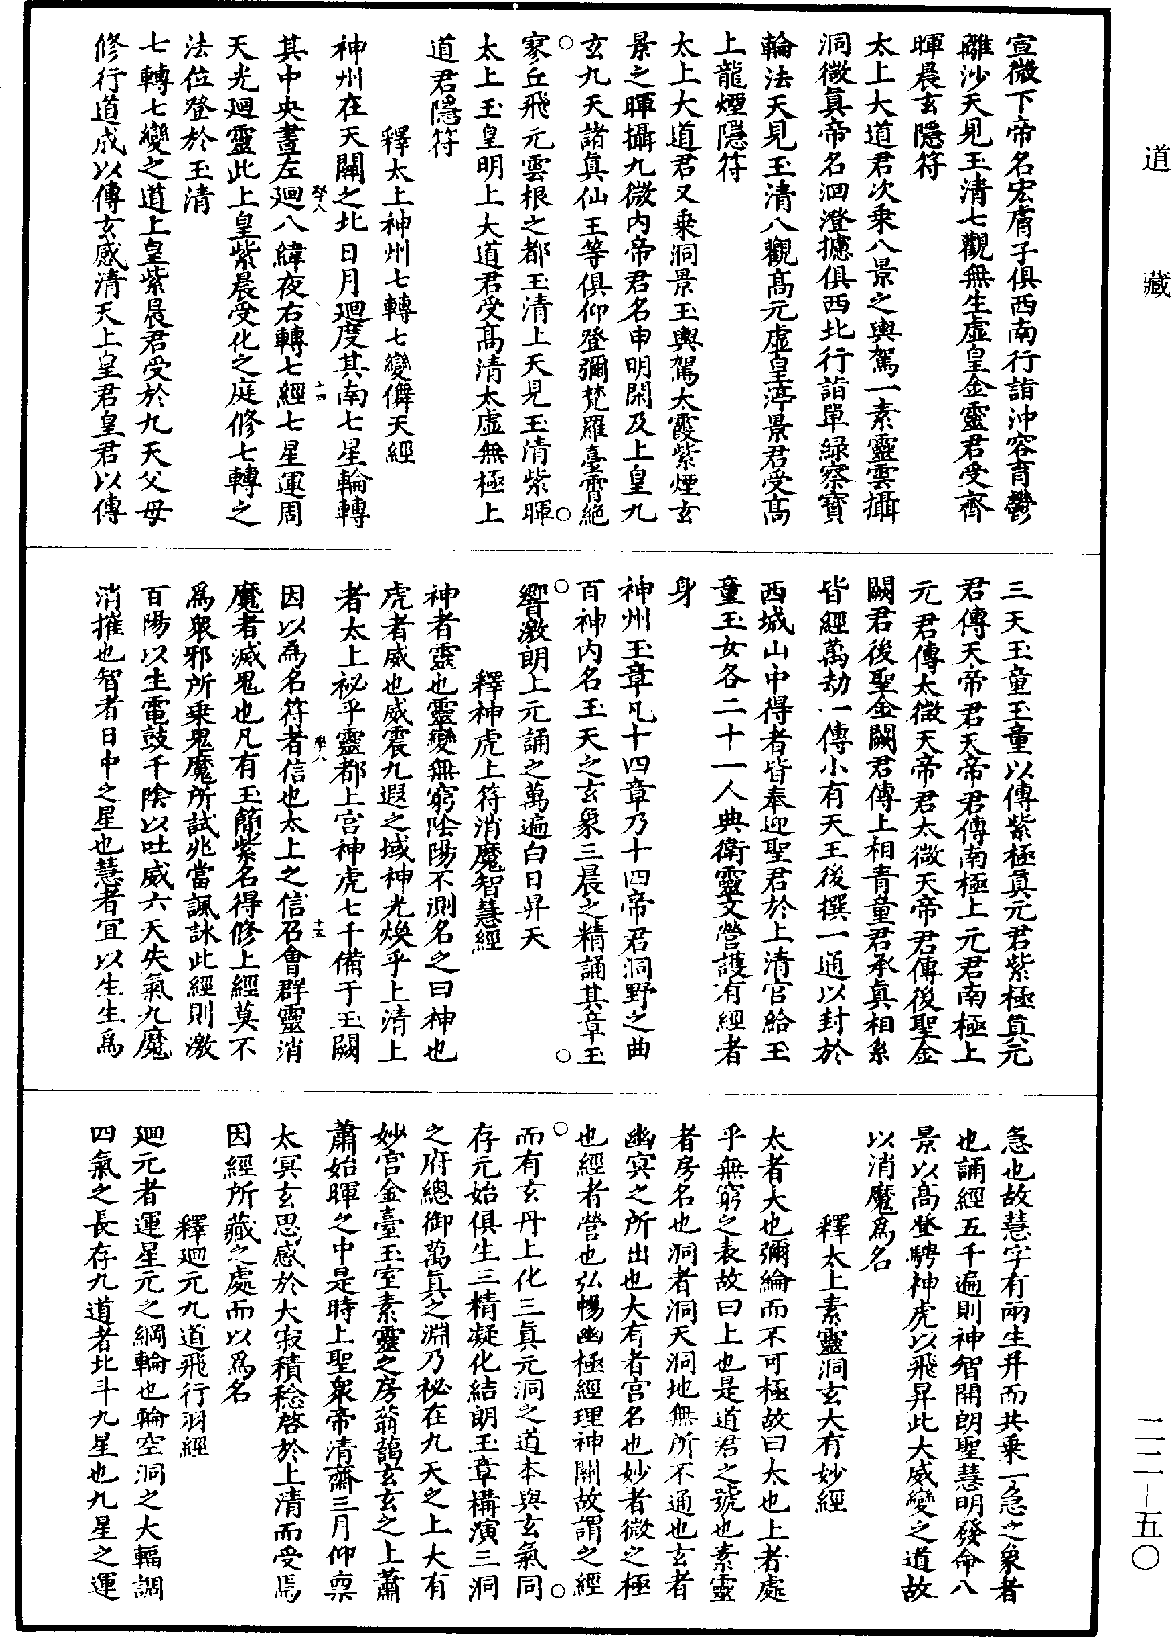 道藏
宣微下帝名宏膚子俱西南行詣沖容育鬱
離沙天見玉清七觀無生虛皇金靈君受齊
暉晨玄隱符
太上大道君次乘八景之輿駕一素靈雲攝
洞微真帝名洄澄擄俱西北行詣單綠察寶
輪法天見玉清八觀高元虛皇渟景君受高
上龍煙隱符
太上大道君又乘洞景玉輿駕大霞紫煙玄
景之暉攝九微內帝君名申明閑及上皇九
玄九天諸真仙王等俱仰登彌梵羅臺霄絕
寥丘飛元雲根之都玉清上天見玉清紫暉
太上玉皇明上大道君受高清太虛無極上
道君隱符
釋太上神州七轉七變儛天經
神州在天關之北日月迴度其南七星輪轉
其中央晝左迴八緯夜右轉七經七星運周
天光迴靈此上皇紫晨受化之庭修七轉之
法位登於玉清
七轉七變之道上皇紫晨君受於九天父母
修行道成以傳玄感清天上皇君皇君以傳
三天玉童玉童以傳紫極真元君紫極真元
君傳天帝君天帝君傳南極上元君南極上
元君傳太微天帝君太微天帝君傳後聖金
闕君後聖金闕君傳上相青童君承真相系
皆經萬劫一傳小有天王後撰一通以封於
西城山中得者皆奉迎聖君於上清宮給玉
童玉女各二十一人典衛靈文營護有經者
身
神州玉章凡十四章乃十四帝君洞野之曲
百神內名玉天之玄象三晨之精誦其章玉
響激朗上元誦之萬遍白日昇天
釋神虎上符消魔智慧經
神者靈也靈變無窮陰陽不測名之曰神也
虎者威也威震九遐之域神光煥乎上清上
者太上祕乎靈都上宮神虎七千備于玉闕
因以為名符者信也太上之信召會群靈消
魔者滅鬼也凡有玉簡紫名得修上經莫不
為眾邪所乘鬼魔所試兆當諷詠此經則激
百陽以生電鼓千陰以吐威六天失氣九魔
消摧也智者日中之星也慧者宜以生生為
急也故慧字有兩生并而共乘一急之象者
也誦經五千遍則神智開朗聖慧明發命八
景以高登騁神虎以飛昇此大威變之道故
以消魔為名
釋太上素靈洞玄大有妙經
太者大也彌綸而不可極故曰太也上者處
乎無窮之表故曰上也是道君之號也素靈
者房名也洞者洞天洞地無所不通也玄者
幽冥之所出也大有者宮名也妙者微之極
也經者營也弘暢幽極經理神關故謂之經
而有玄丹上化三真元洞之道本與玄氣同
存元始俱生三精凝化結朗玉章構演三洞
之府總御萬真之淵乃祕在九天之上大有
妙宮金臺玉室素靈之房蓊藹玄玄之上蕭
蕭始暉之中是時上聖眾帝清齋三月仰稟
太冥玄思感於大寂積稔啓於上清而受焉
因經所藏之處而以為名
釋迴元九道飛行羽經
迴元者運星元之綱輪也輪空洞之大輻調
四氣之長存九道者北斗九星也九星之運
二二-五〇